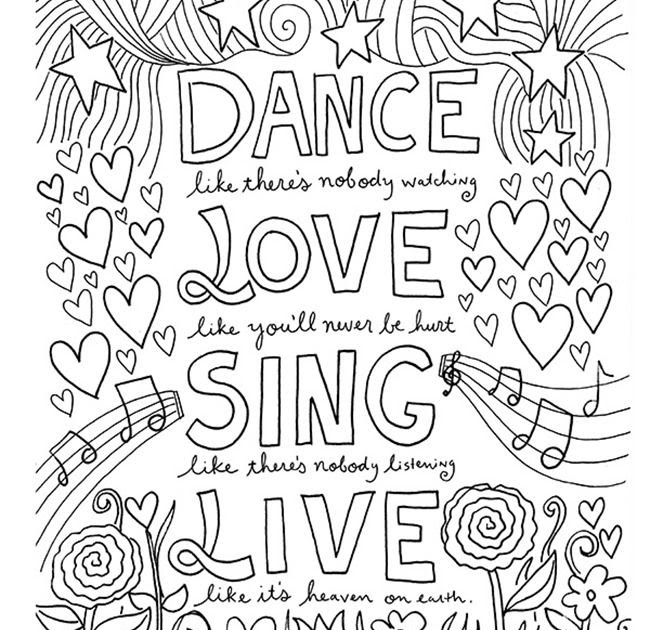 DANCE
like there's nobody watching
LOVE
like you'll never be hurt
SING
like there's nobody listening
LIVE
like it's heaven on earth.